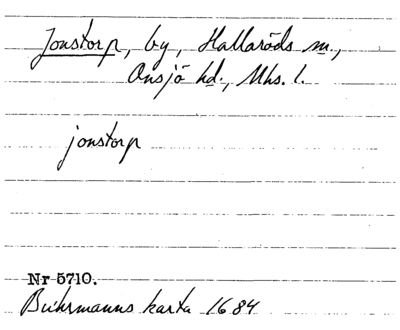 Jonstorp, by, Hallaröds sn.,
Onsjö hd., Mhs. l.
jonstorp
Nr 5710.
Buhrmanns karta 1684